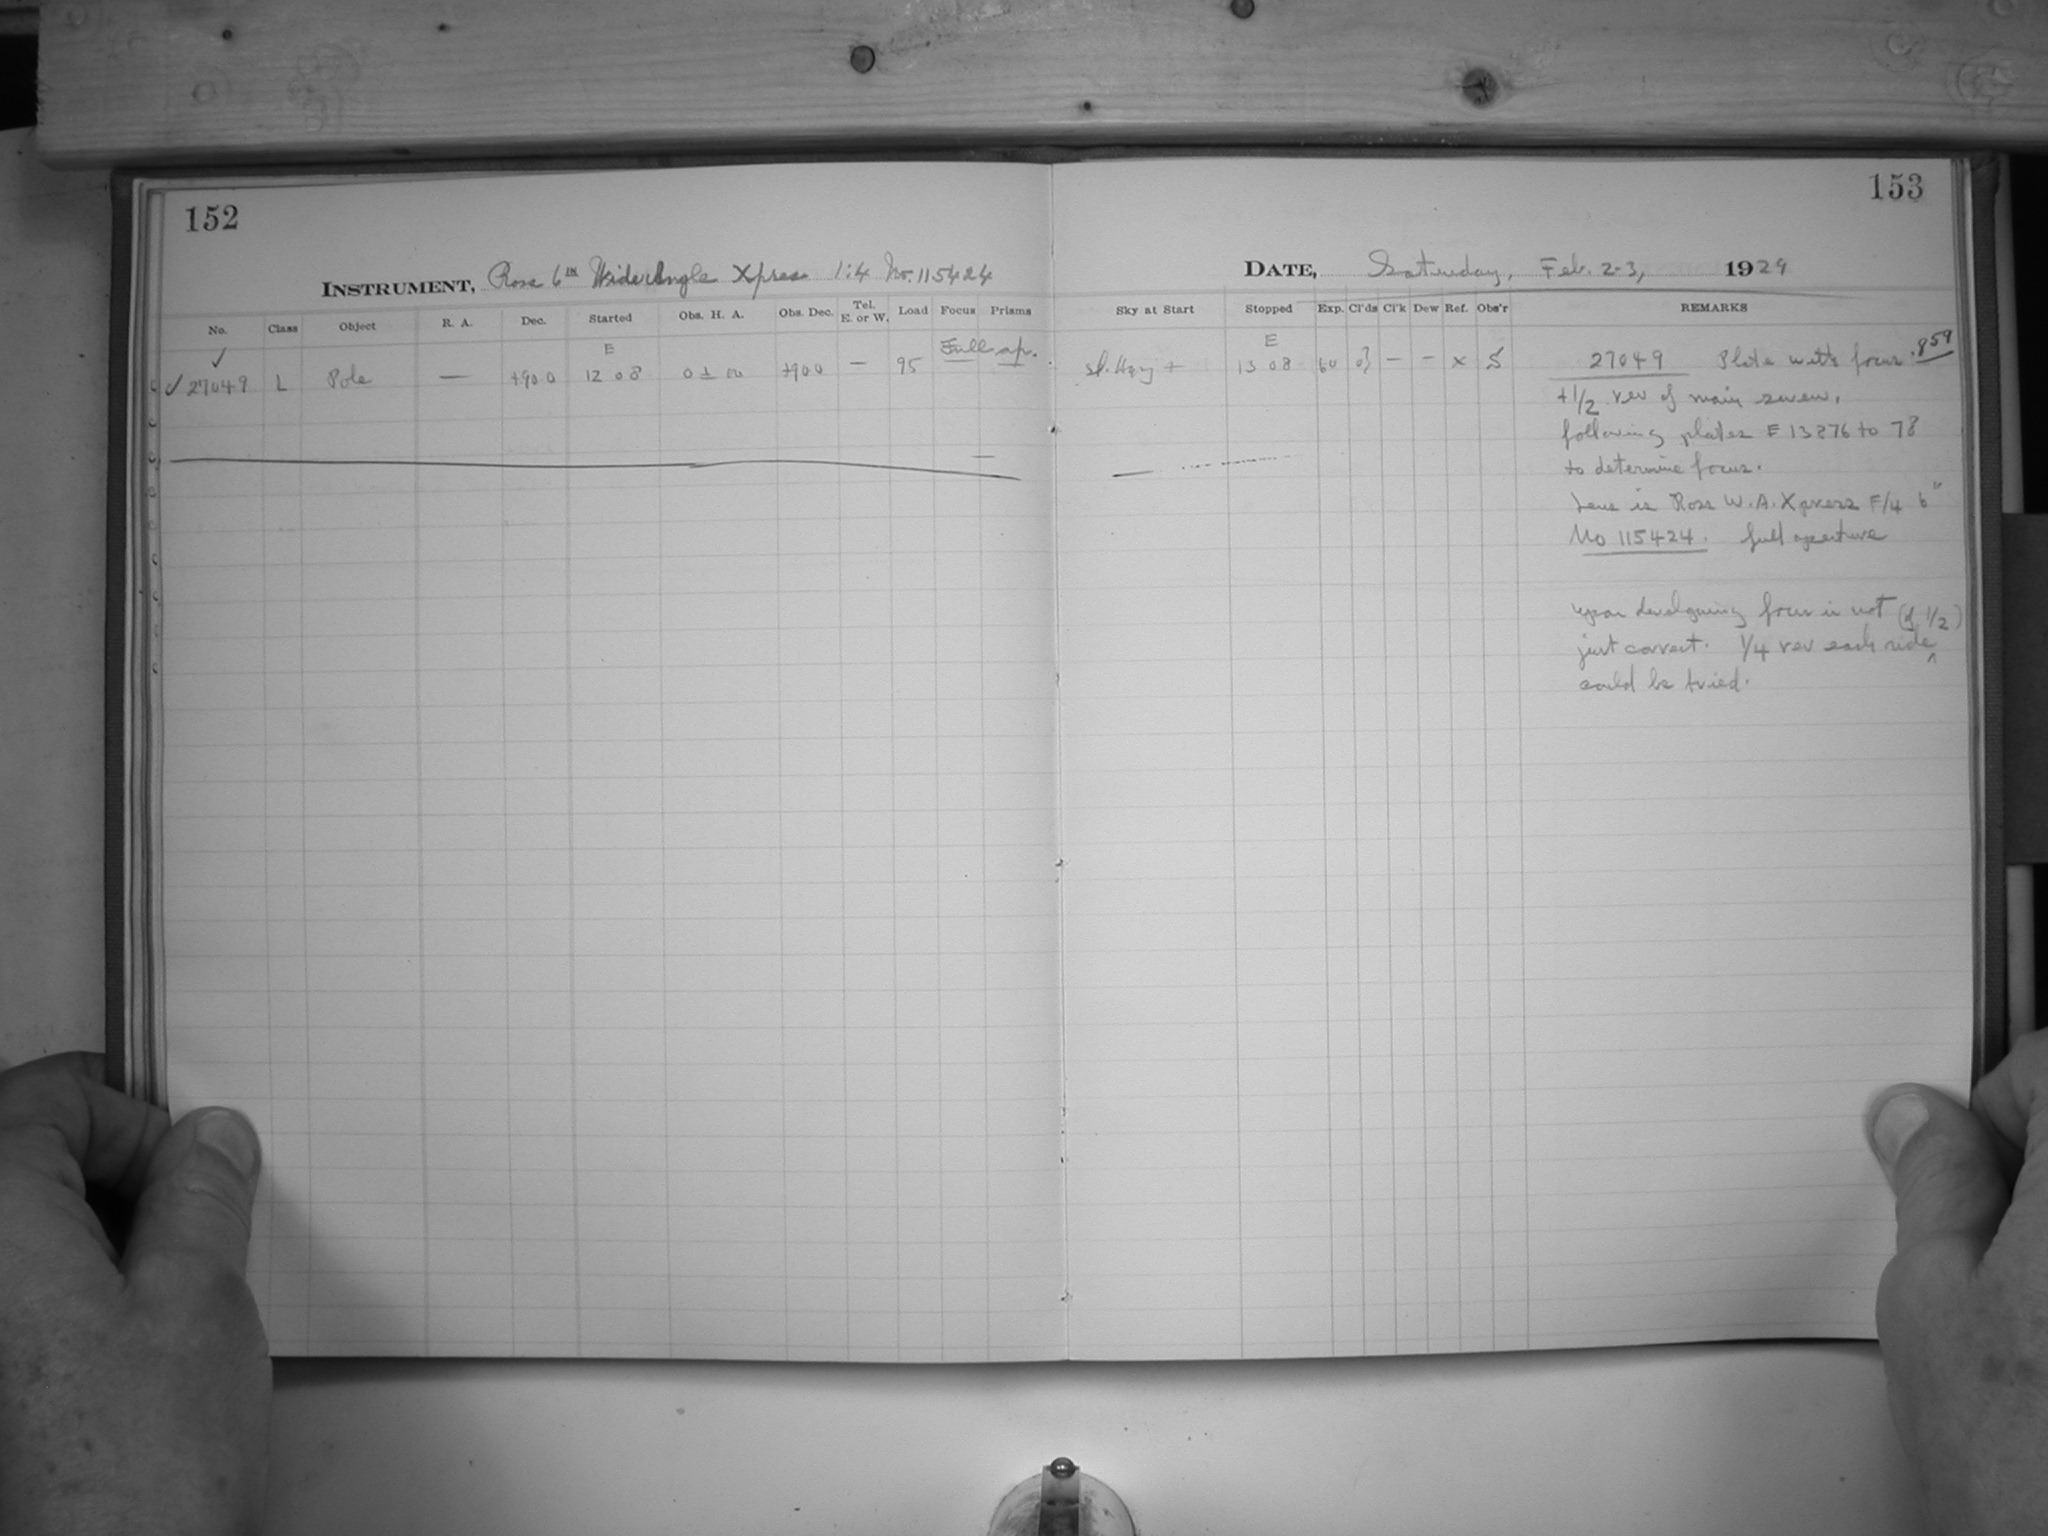 152
153
INSTRUMENT, Ross 6 IN Wide Angle Xpress 1:4 No. 115424
DATE, Saturday, Feb. 2-3, 1929
No. Class Object R. A. Dec. Started Obs. H. A. Obs. Dec. Tel. E. or W. Load Focus Prisms
Sky at Start Stopped Exp. Cl'ds Cl'k Dew Ref. Obs'r REMARKS
✓ E Full ap.
✓ 27049 L Pole — +90 0 12 08 0 ± 00 +90 0 — 95
E
Sl. Hazy + 13 08 60 — — x S
27049 Plate with focus .859
+1/2 rev of main screw,
following plates E 13276 to 78
to determine focus.
Lens is Ross W.A. Xpress F/4 6"
No 115424. full aperture
upon developing focus is not (of 1/2)
just correct. 1/4 rev each side ^
could be tried.